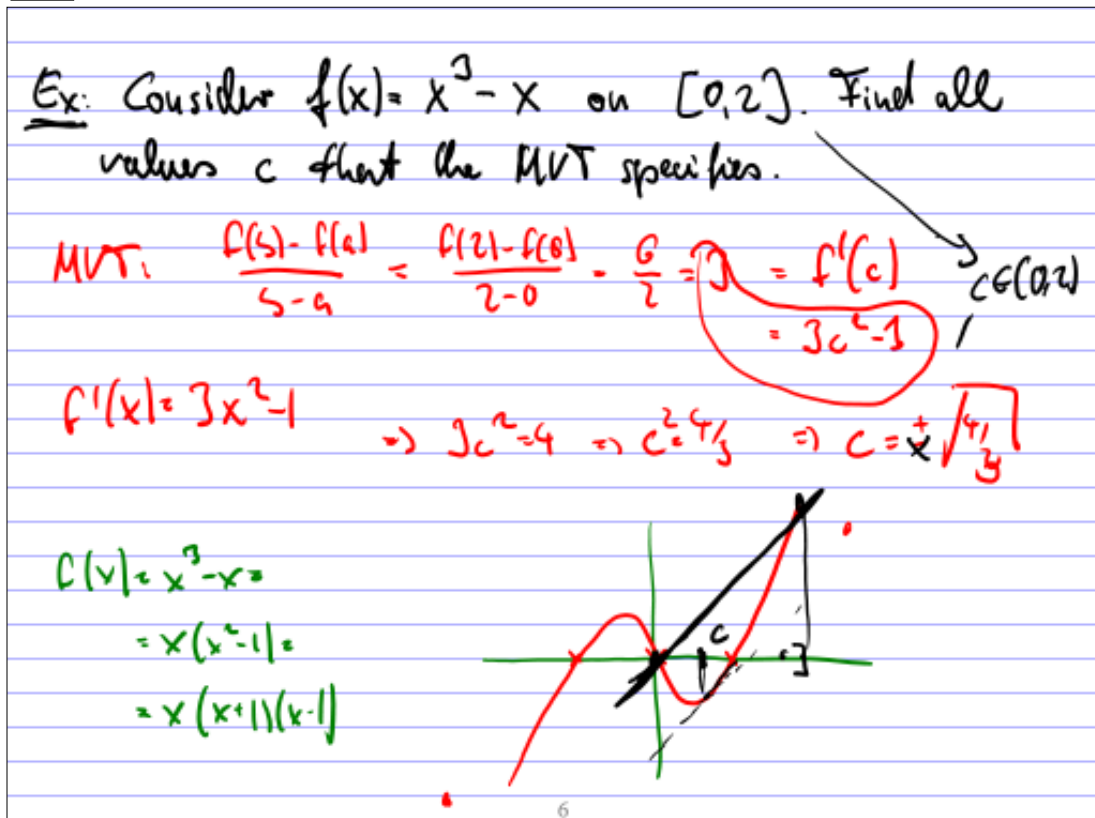 Ex: Consider f(x) = x³ - x on [0,2]. Find all
values c that the MVT specifies.
MVT: (f(b) - f(a))/(b - a) = (f(2) - f(0))/(2 - 0) = 6/2 = 3 = f'(c)
c∈(0,2)
= 3c² - 1
f'(x) = 3x² - 1
=> 3c² = 4 => c² = 4/3 => c = ± √(4/3)
f(x) = x³ - x =
= x(x² - 1) =
= x(x+1)(x-1)
c
6